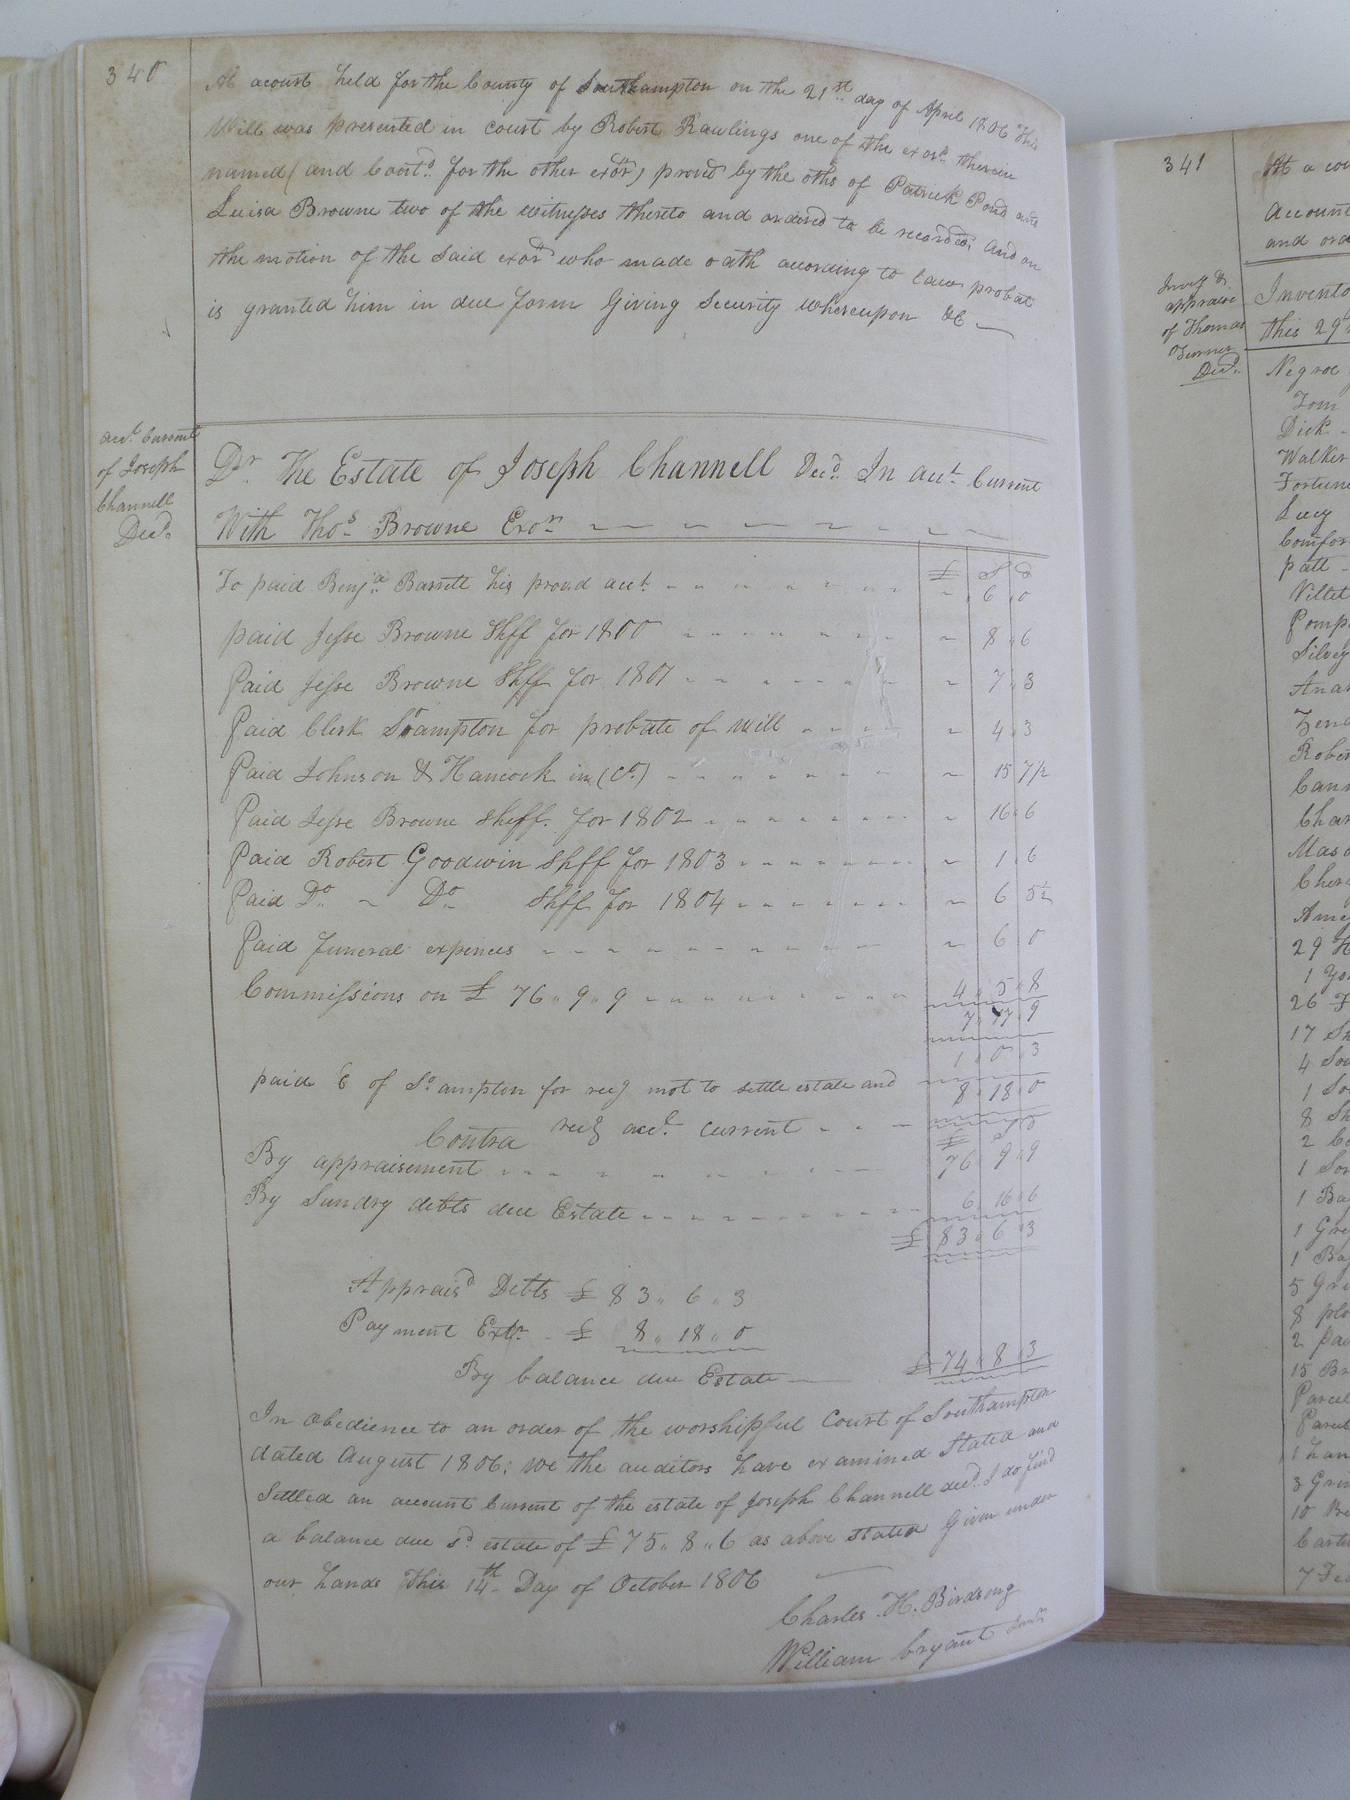 340
At acourt held for the County of Southampton on the 21st day of April 1806 This
Will was presented in court by Robert Rawlings one of the exors. therein
named (and Cavtd. for the other exor) proved by the oths of Patrick Pond and
Luisa Browne two of the witnesses thereto and ordered to be recorded; And on
the motion of the said exor who made oath according to law probat
is granted him in due form Giving Security whereupon &c
acct. Current
of Joseph
Channell
Decd.
Dr. The Estate of Joseph Channell Decd. In acct. Current
With Thos. Browne Exor.
£ S d
To paid Benja. Barrett his proved acct. 6 " 0
paid Jesse Browne Shff for 1800 8 " 6
Paid Jesse Browne Shff for 1801 7 " 3
Paid Clerk So.ampton for probate of will 4 " 3
Paid Johnson & Hancock in (Ct.) 15 7/2
Paid Jesse Browne Sheff. for 1802 16 " 6
Paid Robert Goodwin Shff for 1803 1 " 6
Paid Do. Do. Shff for 1804 6 5½
Paid funeral expences 6 0
Commissions on £ 76 " 9 " 9 4 " 5 " 8
7 " 17 " 9
1 " 0 " 3
paid C of So.ampton for recg mot to settle estate and 8 " 18 " 0
recg acct. current
Contra £ S d
By appraisement 76 " 9 " 9
By Sundry debts due Estate 6 " 16 " 6
£ 83 " 6 " 3
Appraisd Debts £ 83 " 6 " 3
Payment Extr. £ 8 " 18 " 0
By balance due Estate £ 74 " 8 " 3
In Obedience to an order of the worshipful Court of Southampton
dated August 1806; we the auditors have examined Stated and
Settled an account Current of the estate of Joseph Channell decd. I do find
a balance due sd. estate of £75 " 8 " 6 as above stated Given under
our hands This 14th Day of October 1806
Charles H. Birdsong
William Bryant Junr
341
At a cou
Account
and orde
Invy &
appraise
of Thomas
Turner
Decd.
Invento
this 29t
Negroe
Tom
Dick
Walker
Fortune
Lucy
Comfor
patt
Pomp
Silvey
Rober
Char
Maso
Cher
29 H
1 Yo
26 F
17 Sh
4 Sou
1 So
8 Sh
1 Sor
1 Ba
1 Gre
1 Ba
5 Gr
8 plo
2 pa
15 Br
Parcel
Parcel
1 han
3 Grin
10 Be
7 Fea